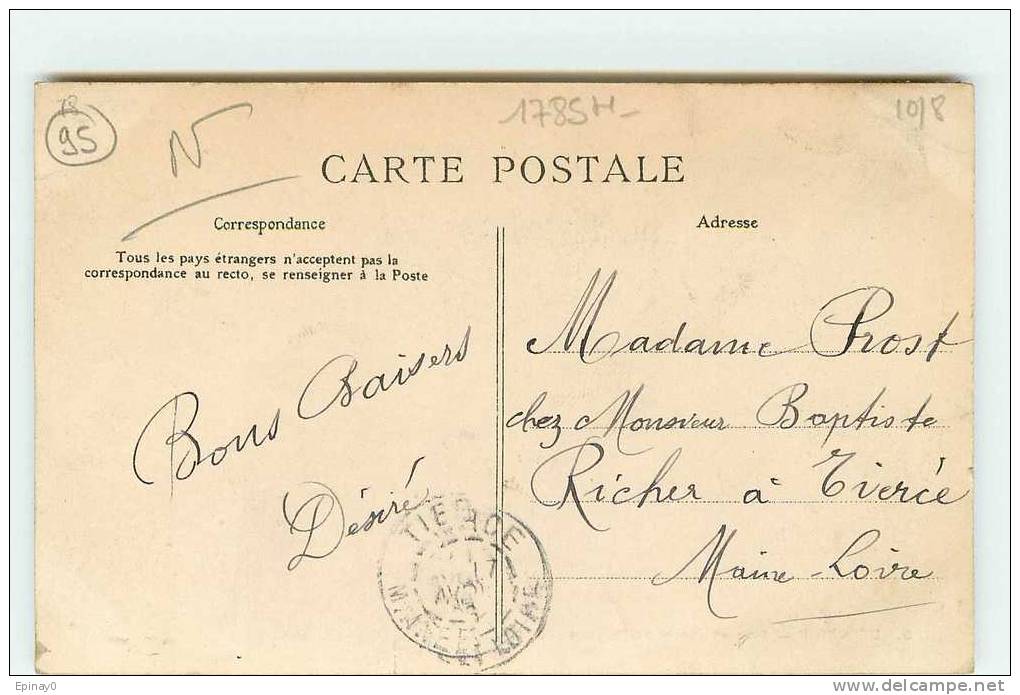 95
N
1785H-
10/8
CARTE POSTALE
Correspondance
Tous les pays étrangers n'acceptent pas la
correspondance au recto, se renseigner à la Poste
Bons Baisers
Désiré
Adresse
Madame Prost
chez Monsieur Baptiste
Richer à Tiercé
Maine-Loire
TIERCE
MAINE ET LOIRE
Epinay0
delcampe.net